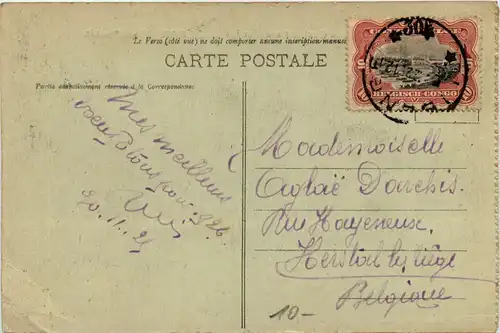 Le Verso (côté vue) ne doit comporter aucune inscription manus
CARTE POSTALE
Partie exclusivement réservée à la Correspondance
BELGISCH-CONGO
10 10
Mes meilleurs
voeux & tous pour 926.
20.11.25
Mademoiselle
Aglaë Darchis
Rue Hayeneux,
Herstal lez Liège
Belgique
10-